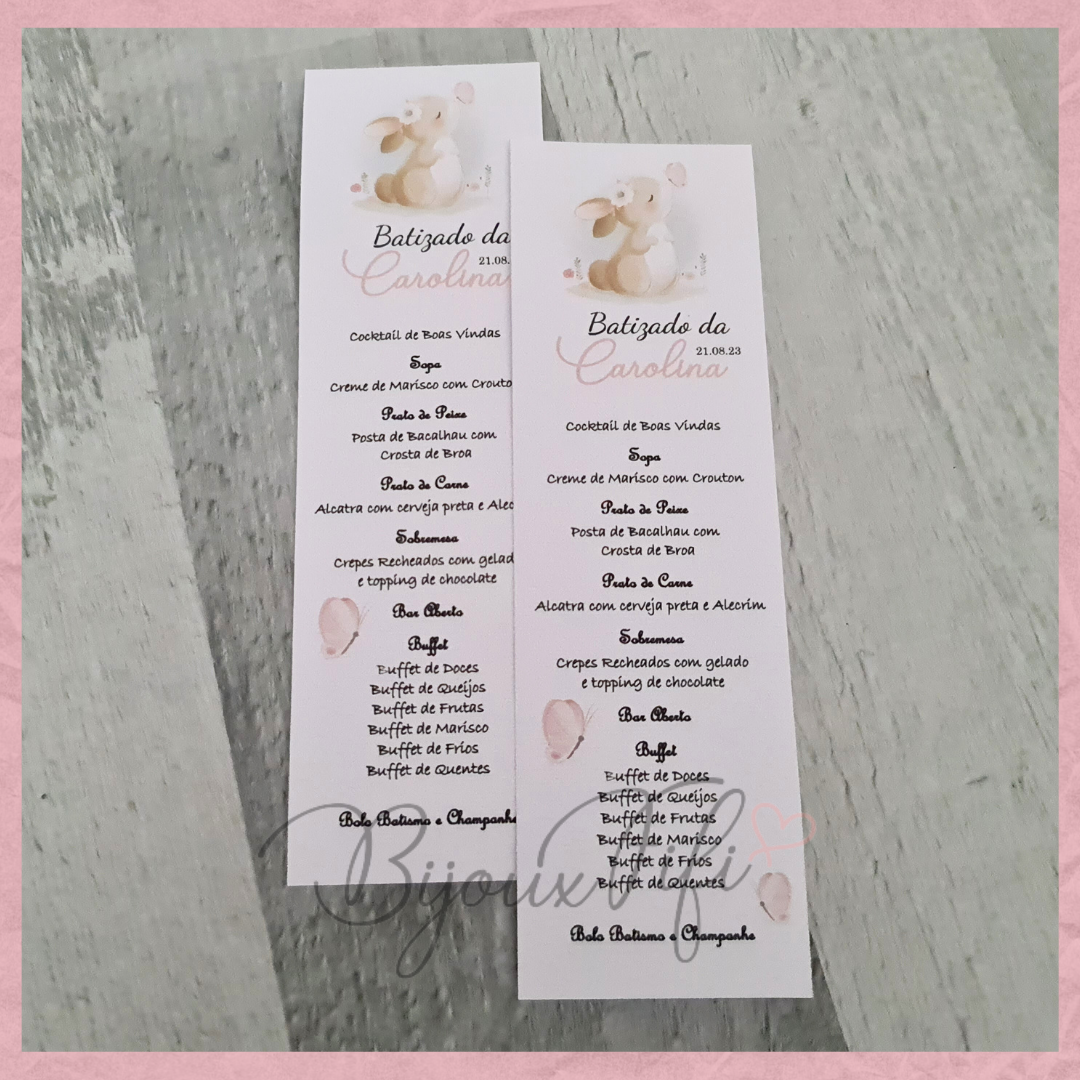 Batizado da
21.08.
Carolina
Cocktail de Boas Vindas
Sopa
Creme de Marisco com Crouto
Prato de Peixe
Posta de Bacalhau com
Crosta de Broa
Prato de Carne
Alcatra com cerveja preta e Alec
Sobremesa
Crepes Recheados com gelad
e topping de chocolate
Bar Aberto
Buffet
Buffet de Doces
Buffet de Queijos
Buffet de Frutas
Buffet de Marisco
Buffet de Frios
Buffet de Quentes
Bolo Batismo e Champanhe
Batizado da
21.08.23
Carolina
Cocktail de Boas Vindas
Sopa
Creme de Marisco com Crouton
Prato de Peixe
Posta de Bacalhau com
Crosta de Broa
Prato de Carne
Alcatra com cerveja preta e Alecrim
Sobremesa
Crepes Recheados com gelado
e topping de chocolate
Bar Aberto
Buffet
Buffet de Doces
Buffet de Queijos
Buffet de Frutas
Buffet de Marisco
Buffet de Frios
Buffet de Quentes
Bolo Batismo e Champanhe
BijouxFifi